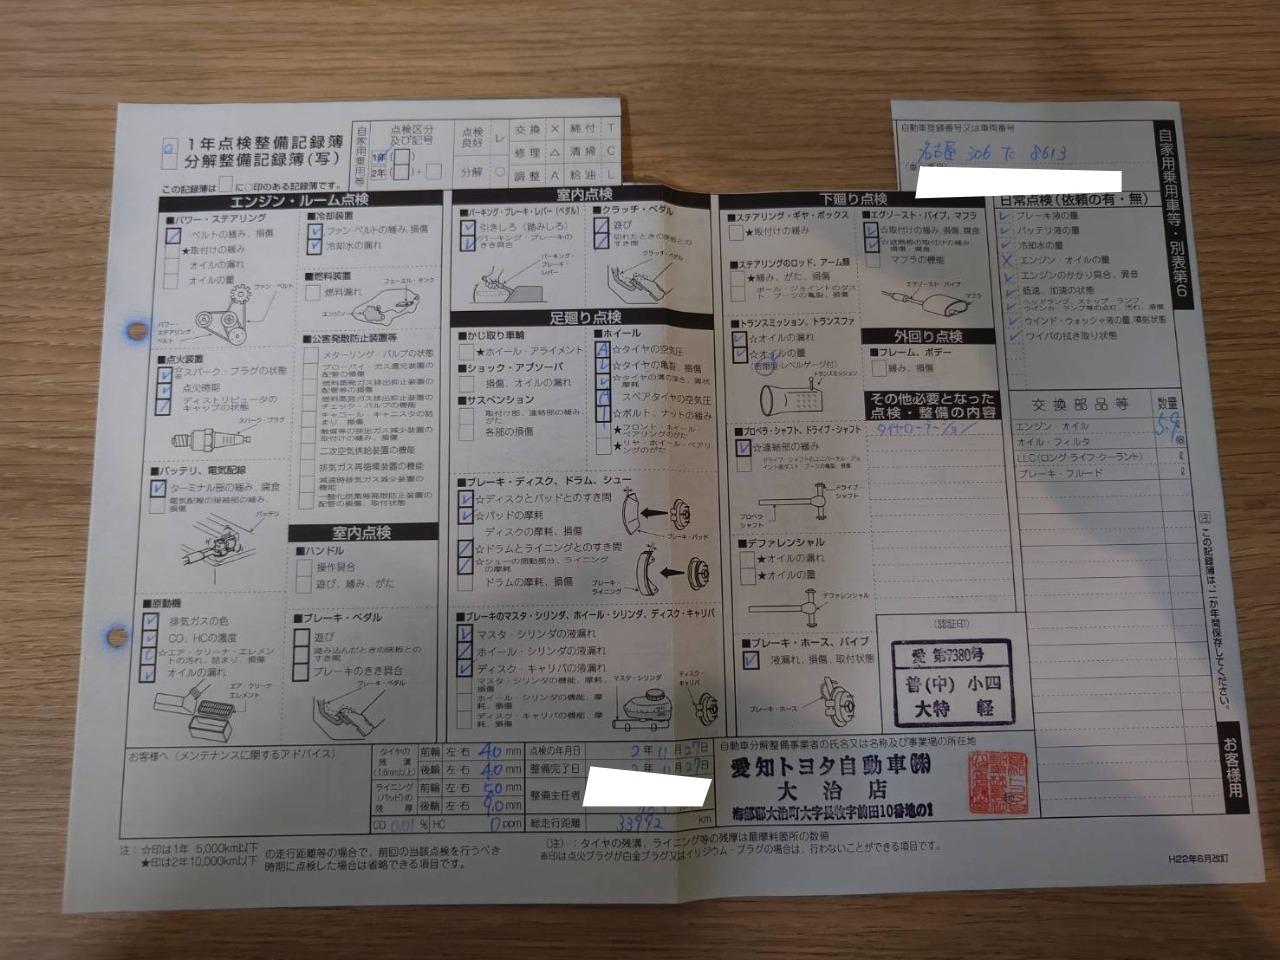 1年点検整備記録簿
分解整備記録簿(写)
この記録簿は□に○印のある記録簿です。
自家用乗用等
点検区分及び記号
1年
2年
点検良好 レ
分解 ○
交換 × 締付 T
修理 △ 清掃 C
調整 A 給油 L
自動車登録番号又は車両番号
名古屋 306 た 8613
自家用乗用車等・別表第6
エンジン・ルーム点検
■パワー・ステアリング
ベルトの緩み、損傷
★取付けの緩み
オイルの漏れ
オイルの量
ファン・ベルト
パワー・ステアリング・ベルト
■点火装置
☆スパーク・プラグの状態
点火時期
ディストリビュータのキャップの状態
スパーク・プラグ
■バッテリ、電気配線
ターミナル部の緩み、腐食
電気配線の接続部の緩み、損傷
バッテリ
■原動機
排気ガスの色
CO、HCの濃度
☆エア・クリーナ・エレメントの汚れ、詰まり、損傷
オイルの漏れ
エア・クリーナ・エレメント
■冷却装置
ファン・ベルトの緩み、損傷
冷却水の漏れ
■燃料装置
燃料漏れ
フューエル・タンク
エンジン
■公害発散防止装置等
メターリング・バルブの状態
ブローバイ・ガス還元装置の配管の損傷
燃料蒸発ガス排出抑止装置の配管等の損傷
燃料蒸発ガス排出抑止装置のチェック・バルブの機能
チャコール・キャニスタの詰まり、損傷
触媒等の排出ガス減少装置の取付けの緩み、損傷
二次空気供給装置の機能
排気ガス再循環装置の機能
減速時排気ガス減少装置の機能
一酸化炭素等発散防止装置の配管の損傷、取付状態
室内点検
■ハンドル
操作具合
遊び、緩み、がた
■ブレーキ・ペダル
遊び
踏み込んだときの床板とのすき間
ブレーキのきき具合
ブレーキ・ペダル
室内点検
■パーキング・ブレーキ・レバー(ペダル)
引きしろ(踏みしろ)
パーキング・ブレーキのきき具合
パーキング・ブレーキ・レバー
■クラッチ・ペダル
遊び
切れたときの床板とのすき間
クラッチ・ペダル
足廻り点検
■かじ取り車輪
★ホイール・アライメント
■ショック・アブソーバ
損傷、オイルの漏れ
■サスペンション
取付け部、連結部の緩み、がた
各部の損傷
■ホイール
A ☆タイヤの空気圧
☆タイヤの亀裂、損傷
☆タイヤの溝の深さ、異状摩耗
スペアタイヤの空気圧
☆ボルト、ナットの緩み
★フロント・ホイール・ベアリングのがた
★リヤ・ホイール・ベアリングのがた
■ブレーキ・ディスク、ドラム、シュー
☆ディスクとパッドとのすき間
☆パッドの摩耗
ディスクの摩耗、損傷
☆ドラムとライニングとのすき間
☆シューの摺動部分、ライニングの摩耗
ドラムの摩耗、損傷
ブレーキ・パッド
ブレーキ・ライニング
■ブレーキのマスタ・シリンダ、ホイール・シリンダ、ディスク・キャリパ
マスタ・シリンダの液漏れ
ホイール・シリンダの液漏れ
ディスク・キャリパの液漏れ
マスタ・シリンダの機能、摩耗、損傷
ホイール・シリンダの機能、摩耗、損傷
ディスク・キャリパの機能、摩耗、損傷
マスタ・シリンダ
ディスク・キャリパ
下廻り点検
■ステアリング・ギヤ・ボックス
★取付けの緩み
■ステアリングのロッド、アーム類
★緩み、がた、損傷
ボール・ジョイントのダスト・ブーツの亀裂、損傷
■トランスミッション、トランスファ
☆オイルの漏れ
☆オイルの量
トランスミッション
■プロペラ・シャフト、ドライブ・シャフト
☆連結部の緩み
ドライブ・シャフトのユニバーサル・ジョイント部ダスト・ブーツの亀裂、損傷
ドライブ・シャフト
プロペラ・シャフト
■デファレンシャル
★オイルの漏れ
★オイルの量
デファレンシャル
■ブレーキ・ホース、パイプ
液漏れ、損傷、取付状態
ブレーキ・ホース
■エグゾースト・パイプ、マフラ
☆取付けの緩み、損傷、腐食
☆遮熱板の取付けの緩み、損傷、腐食
マフラの機能
エグゾースト・パイプ
マフラ
外回り点検
■フレーム、ボデー
緩み、損傷
その他必要となった点検・整備の内容
タイヤローテーション
(認証印)
愛 第7380号
普(中) 小四
大特 軽
日常点検(依頼の有・無)
ブレーキ液の量
バッテリ液の量
冷却水の量
エンジン・オイルの量
エンジンのかかり具合、異音
低速、加速の状態
ヘッドランプ、ストップ・ランプ、ウインカ・ランプ等の点灯、汚れ、損傷
ウインド・ウォッシャ液の量、噴射状態
ワイパの拭き取り状態
交換部品等 数量
エンジン・オイル 5.9 ℓ
オイル・フィルタ 個
LLC(ロング・ライフ・クーラント) ℓ
ブレーキ・フルード ℓ
注 この記録簿は、二か年間保存してください。
お客様用
お客様へ(メンテナンスに関するアドバイス)
タイヤの残溝(1.6mm以上)
前輪 左・右 4.0 mm
後輪 左・右 4.0 mm
ライニング(パッド)の残厚
前輪 左・右 8.0 mm
後輪 左・右 9.0 mm
CO 0.01 % HC 0 ppm
点検の年月日 2年11月27日
整備完了日 2年11月27日
整備主任者
総走行距離 33992 km
自動車分解整備事業者の氏名又は名称及び事業場の所在地
愛知トヨタ自動車㈱
大治店
海部郡大治町大字長牧字前田10番地の1
注:☆印は1年 5,000km以下
★印は2年10,000km以下
の走行距離等の場合で、前回の当該点検を行うべき時期に点検した場合は省略できる項目です。
(注):タイヤの残溝、ライニング等の残厚は最摩耗箇所の数値
※印は点火プラグが白金プラグ又はイリジウム・プラグの場合は、行わないことができる項目です。
H22年6月改訂